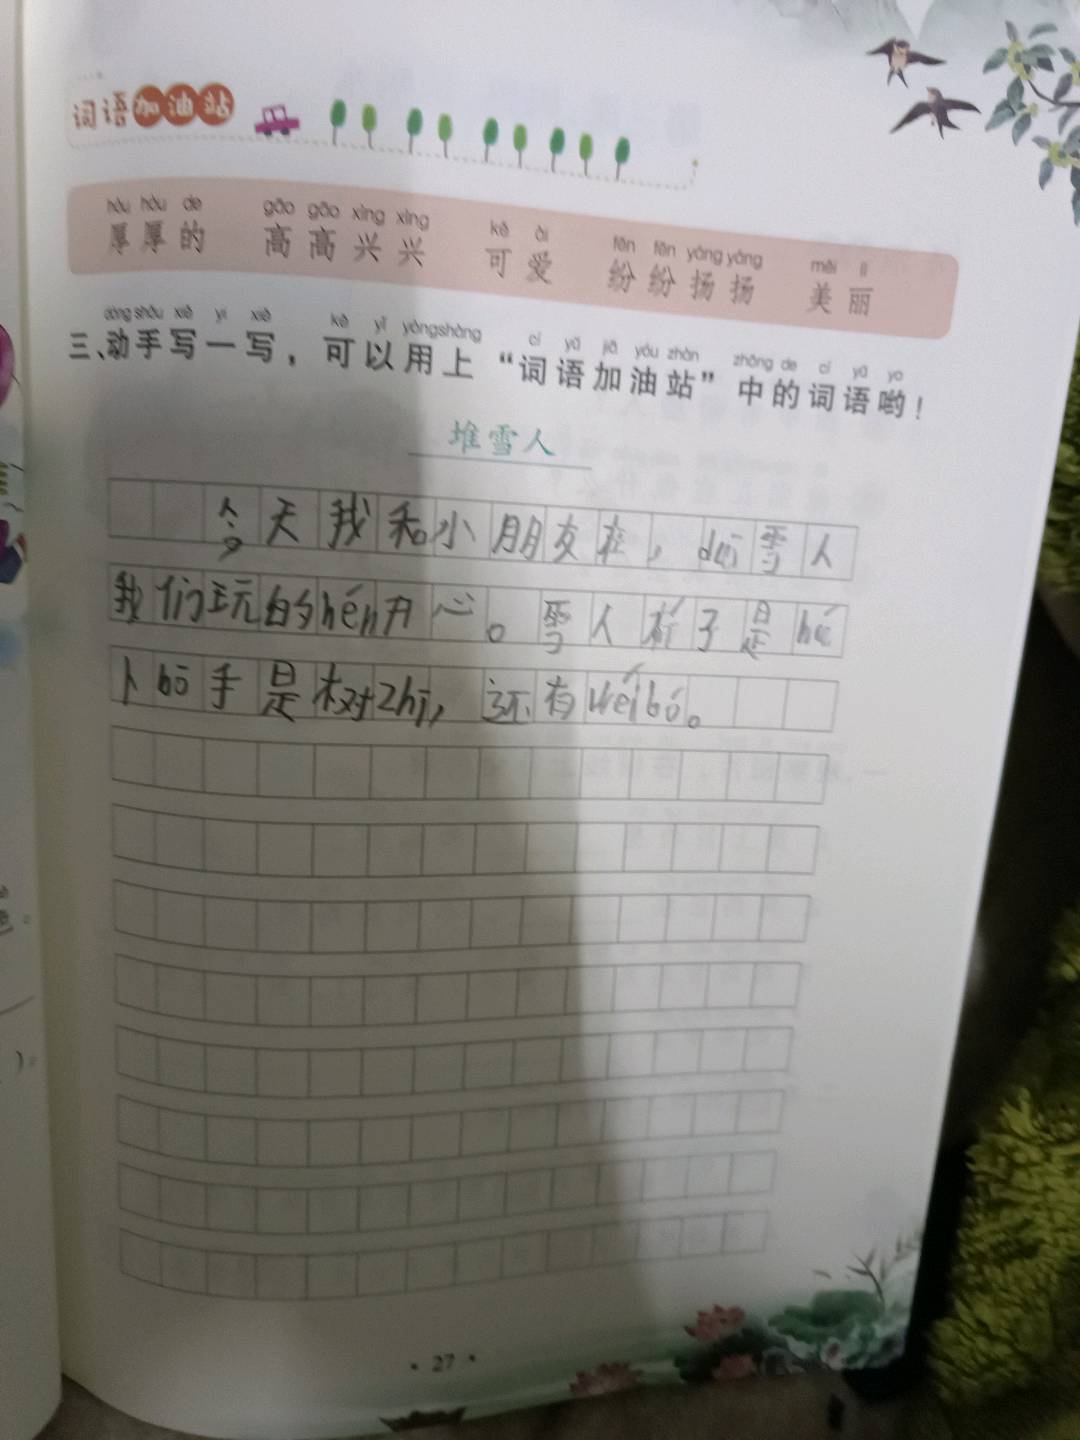 词语加油站
hòu hòu de gāo gāo xìng xìng kě ài fēn fēn yáng yáng měi lì
厚厚的 高高兴兴 可爱 纷纷扬扬 美丽
dòng shǒu xiě yi xiě kě yǐ yòngshàng cí yǔ jiā yóu zhàn zhōng de cí yǔ yo
三、动手写一写，可以用上“词语加油站”中的词语哟！
堆雪人
今天我和小朋友在，duī雪人
我们玩的hén开心。雪人样子是hú
卜bō手是树zhī，还有wéibó。
· 27 ·